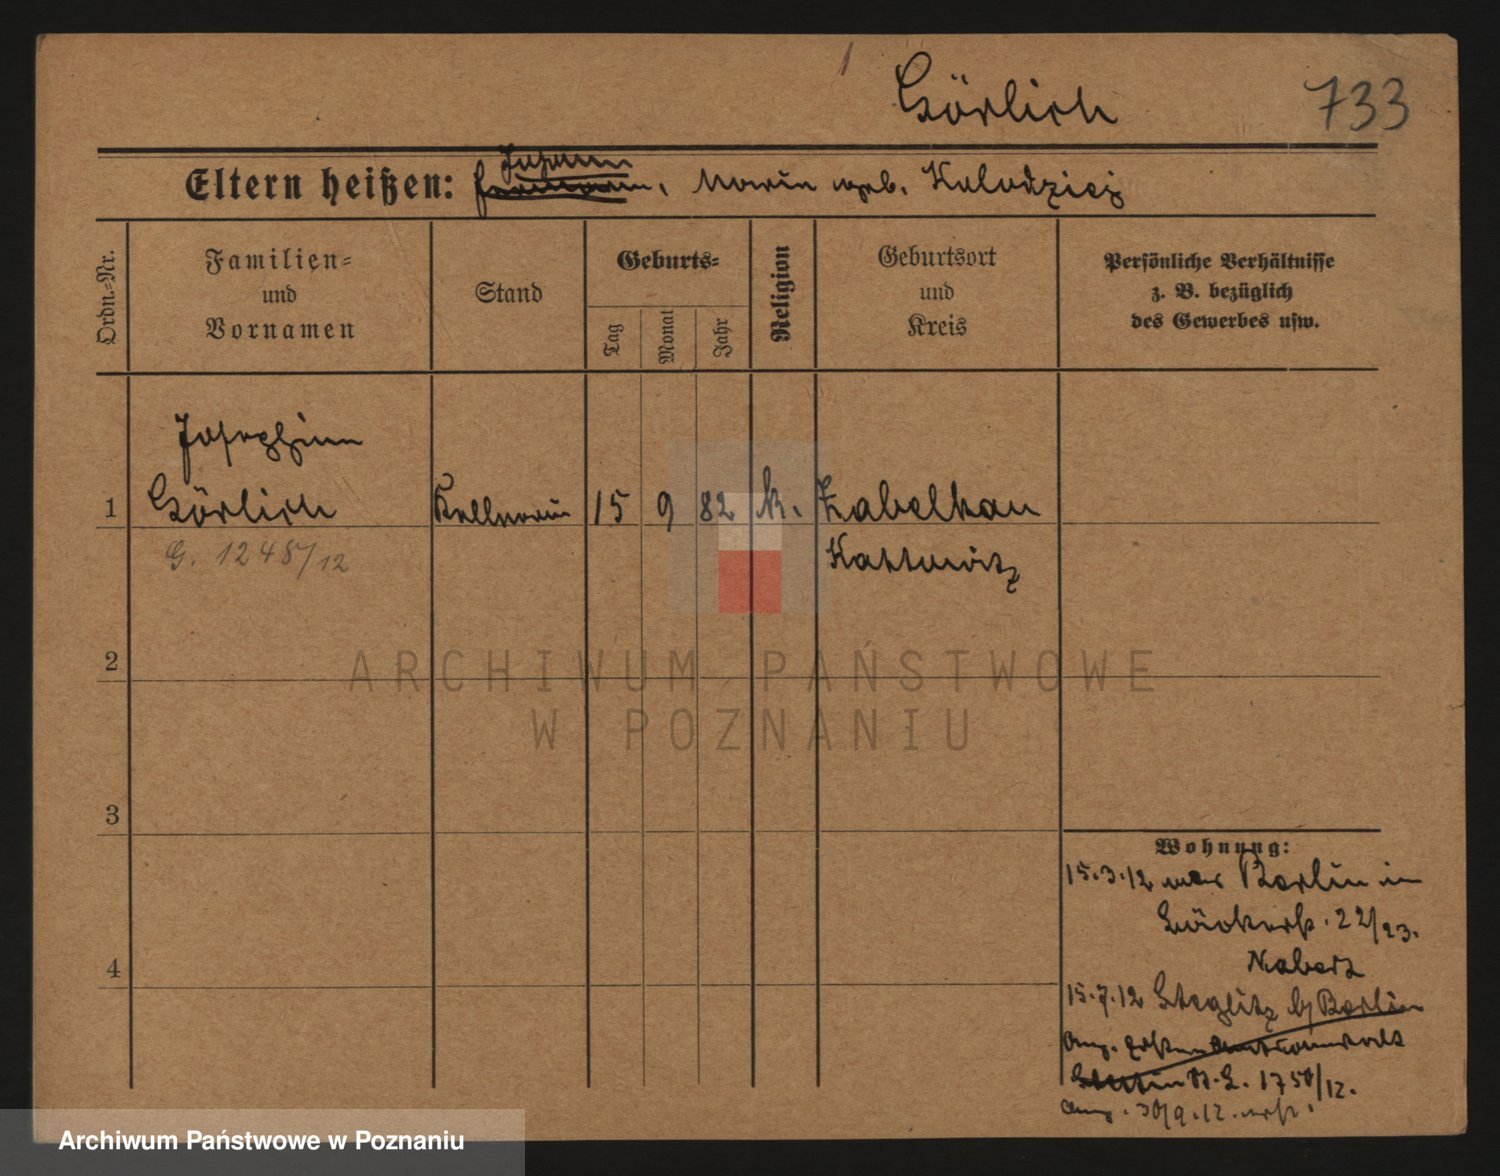 Görlich
733
Johann
Eltern heißen: Marie geb. Kolodziej
Ordn.-Nr.
Familien-
und
Vornamen
Stand
Geburts-
Tag
Monat
Jahr
Religion
Geburtsort
und
Kreis
Persönliche Verhältnisse
z. B. bezüglich
des Gewerbes usw.
Josephine
1 Görlich Kellnerin 15 9 82 k. Zabelkau
G. 1248/12 Kattowitz
2
3
4
Wohnung:
15.3.12 von Berlin in
22/23.
15.7.12 Steglitz b/ Berlin
1750/12.
30/9.12.
ARCHIWUM PAŃSTWOWE
W POZNANIU
Archiwum Państwowe w Poznaniu